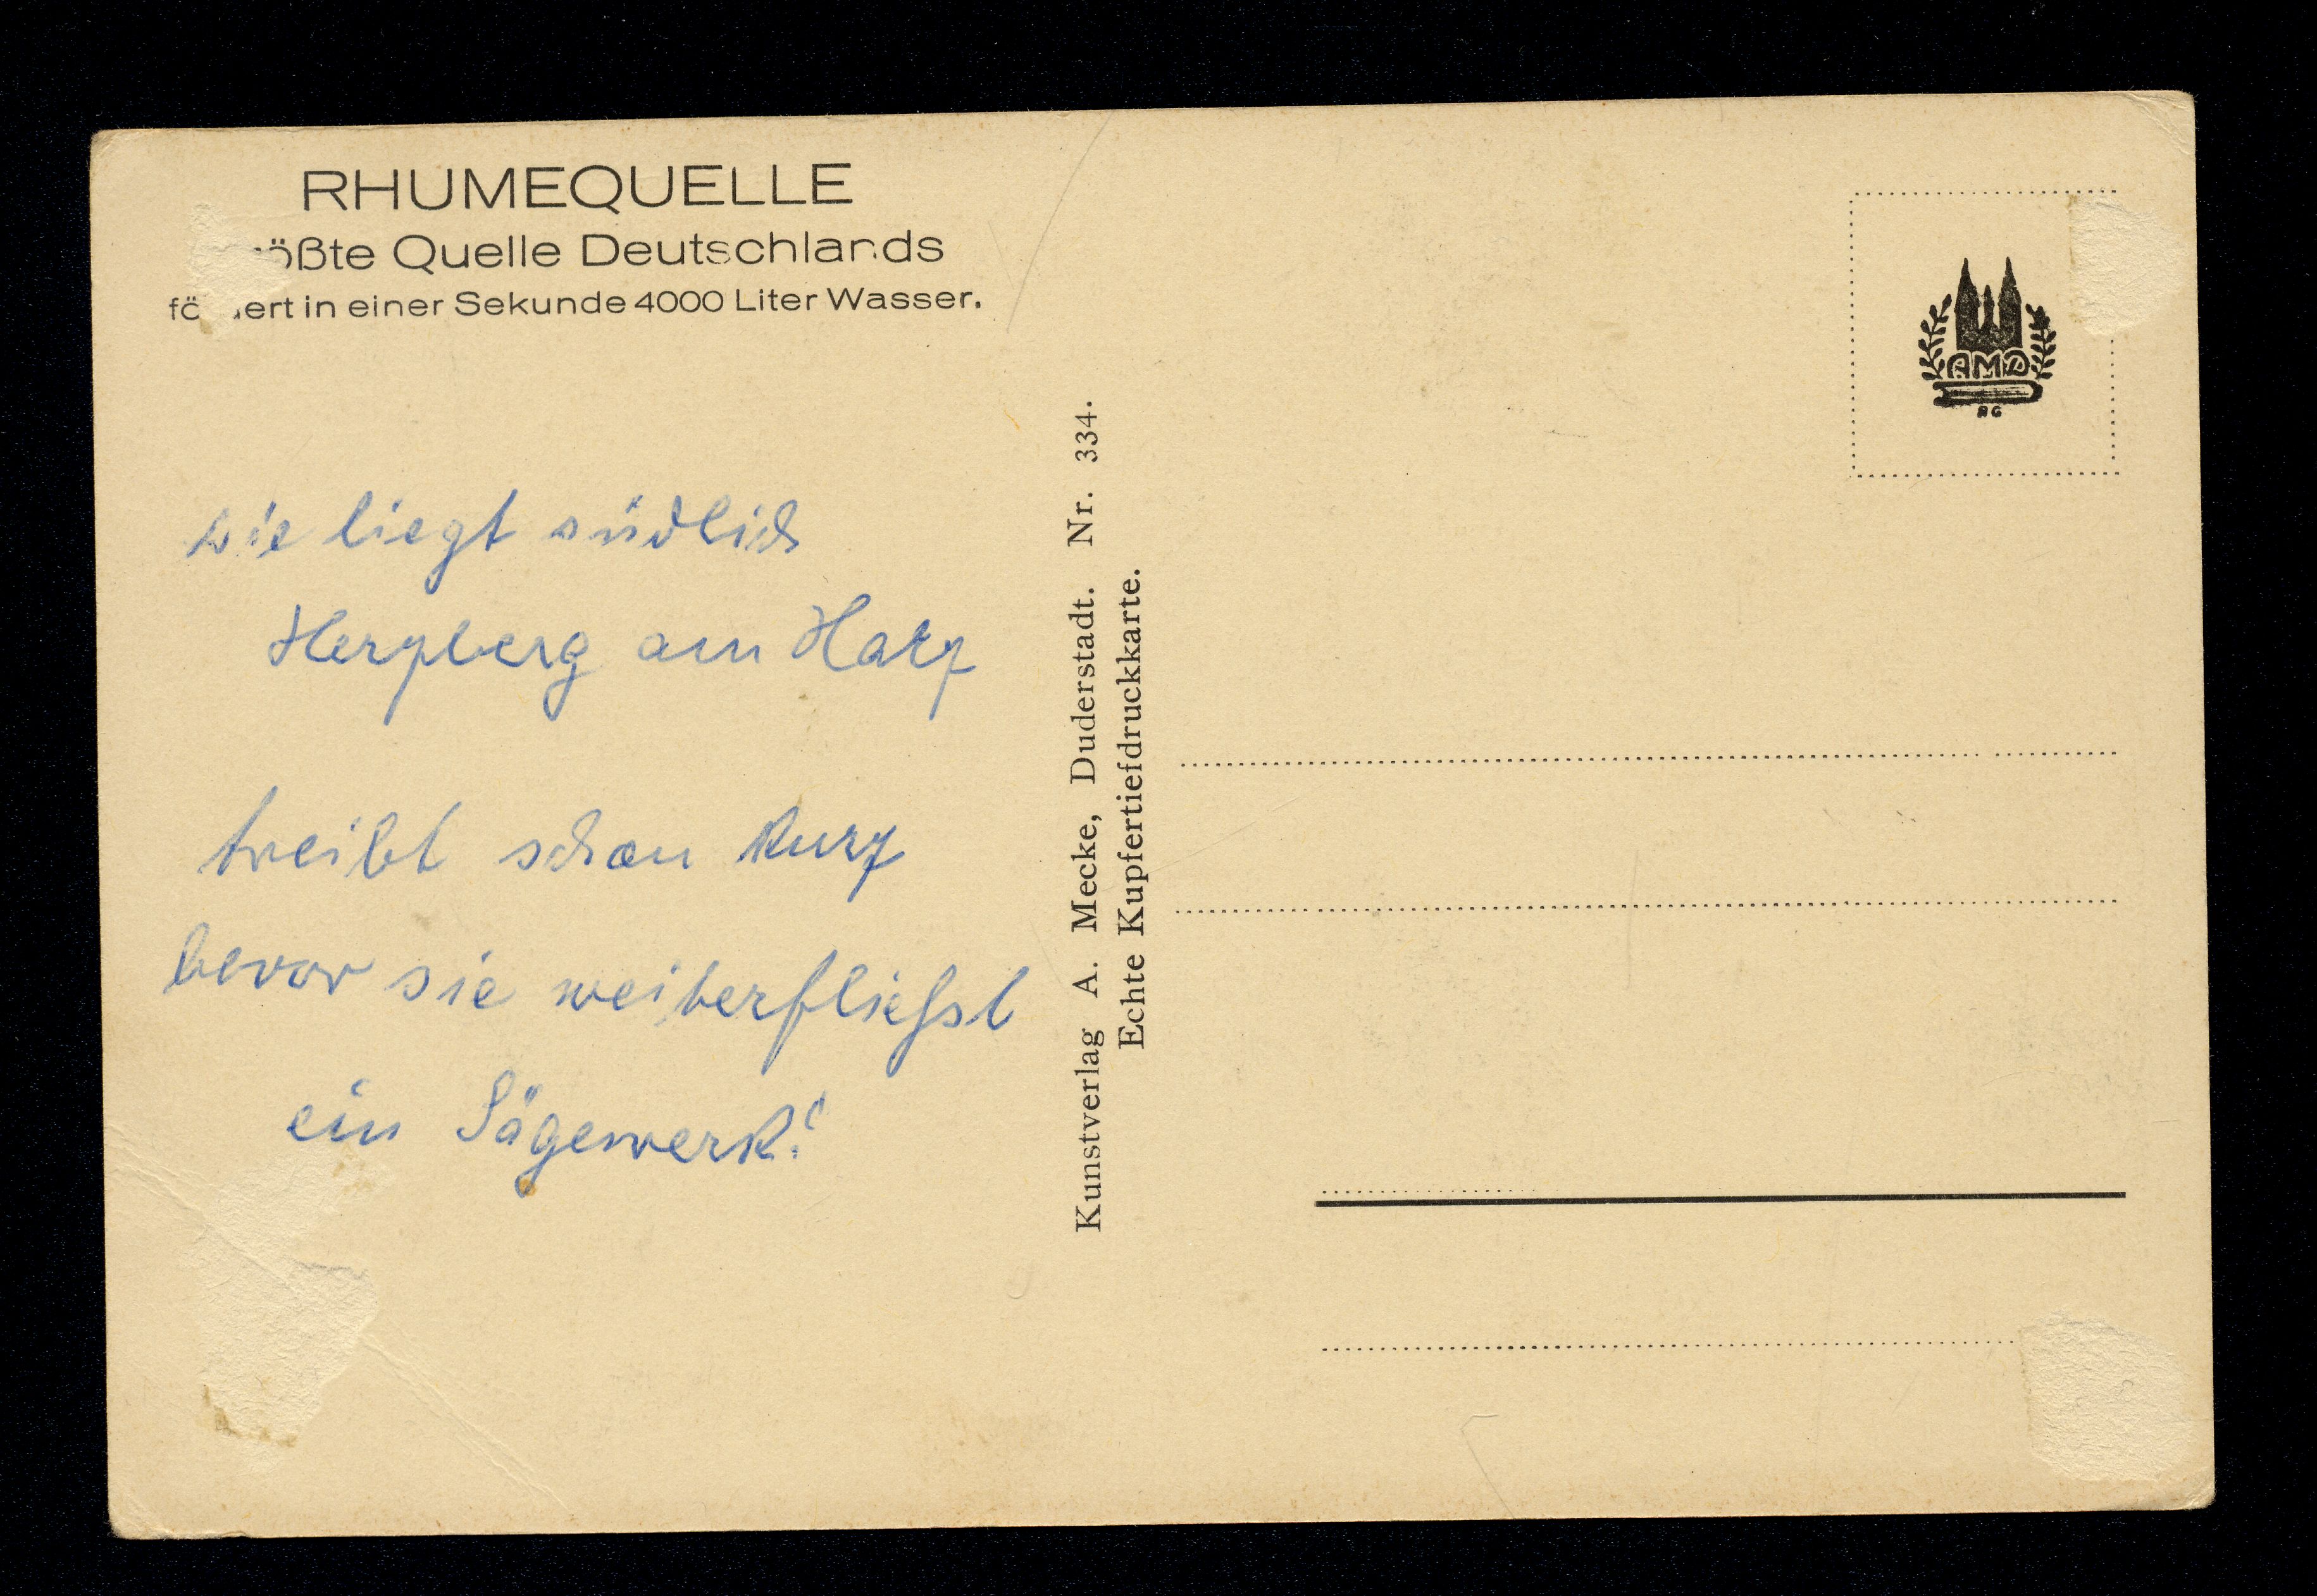 RHUMEQUELLE
ößte Quelle Deutschlands
ert in einer Sekunde 4000 Liter Wasser.
sie liegt südlich
Herzberg am Harz
treibt schon kurz
bevor sie weiterfliesst
ein Sägewerk!
Kunstverlag A. Mecke, Duderstadt. Nr. 334.
Echte Kupfertiefdruckkarte.
AMD